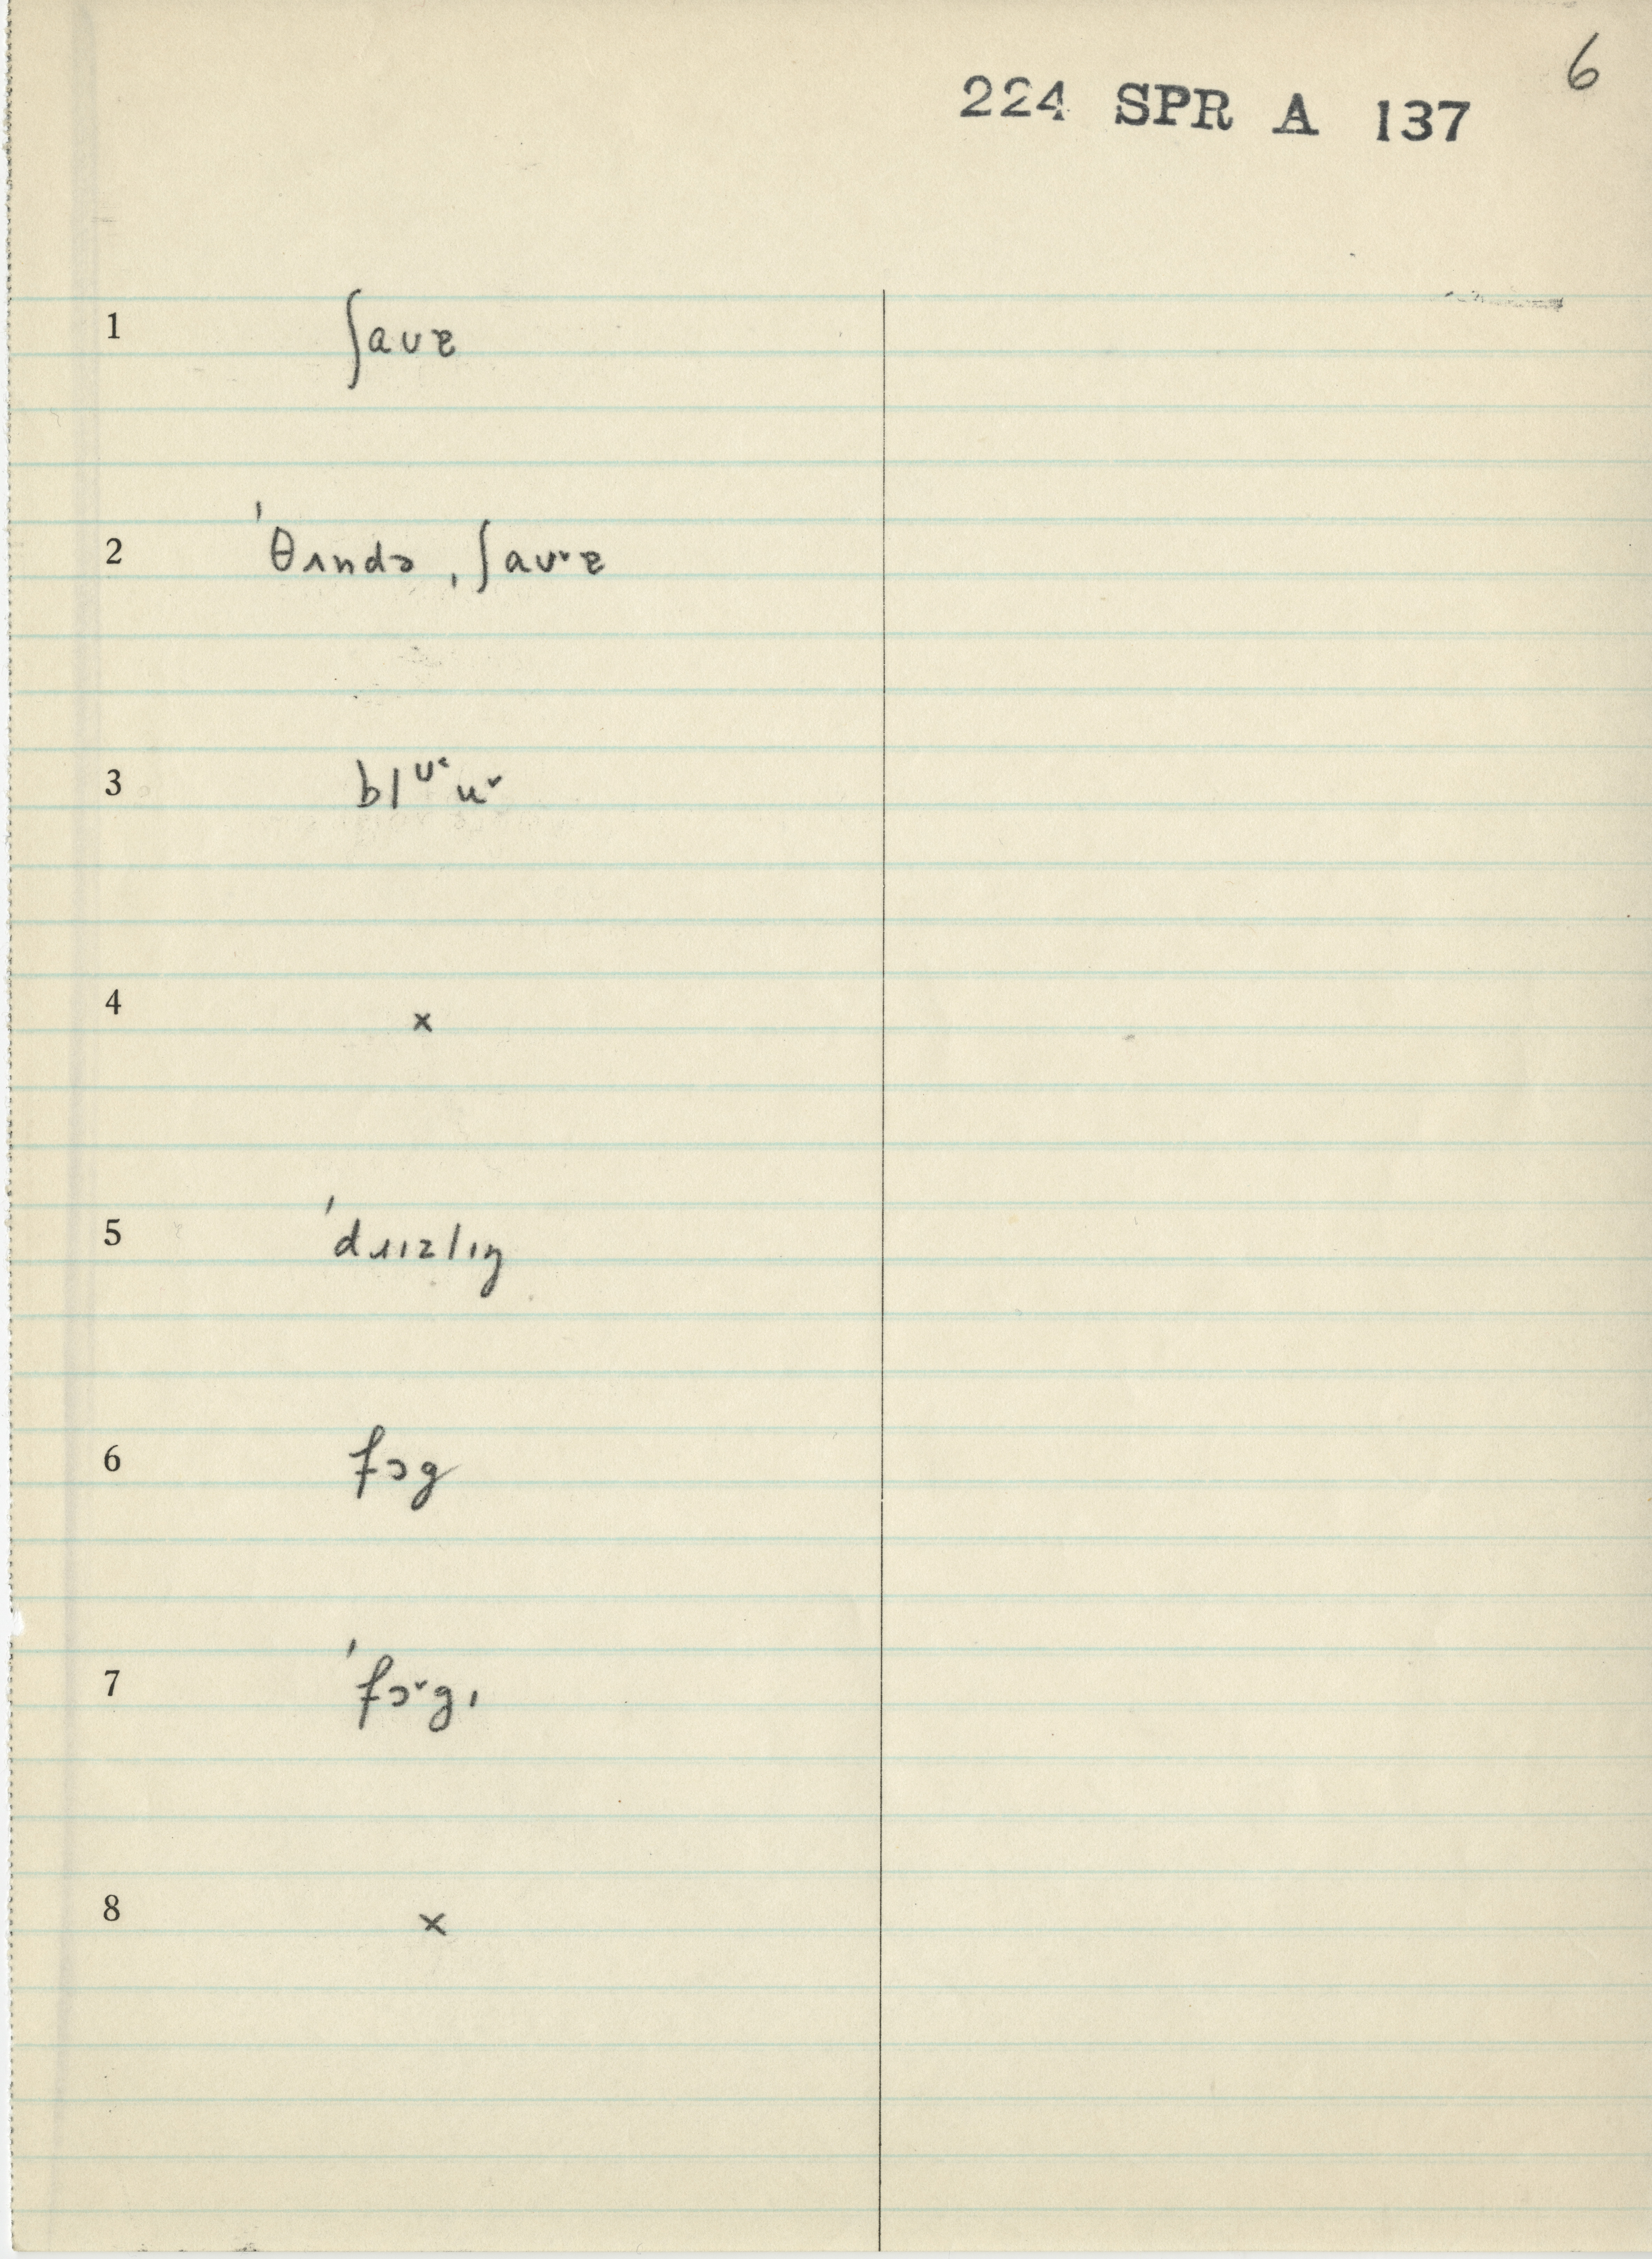 6
224 SPR A 137
1 ʃaʊɚ
2 ˈθʌndə ˌʃaʊ˅ɚ
3 blᶷ˂u˅
4 x
5 ˈdɹɪzlɪŋ
6 fɔg
7 ˈfɔ˅gɪ
8 x